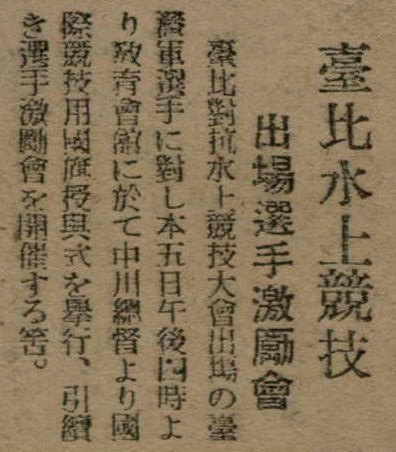 臺比水上競技
出場選手激勵會
臺比對抗水上競技大會出場の臺
灣軍選手に對し本五日午後四時よ
り敎育會館に於て中川總督より國
際競技用國旗授與式を擧行、引續
き選手激勵會を開催する筈。